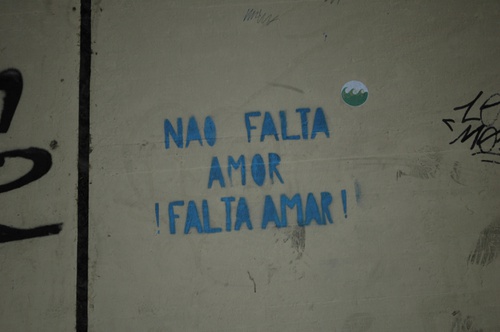 NAO FALTA
AMOR
! FALTA AMAR !